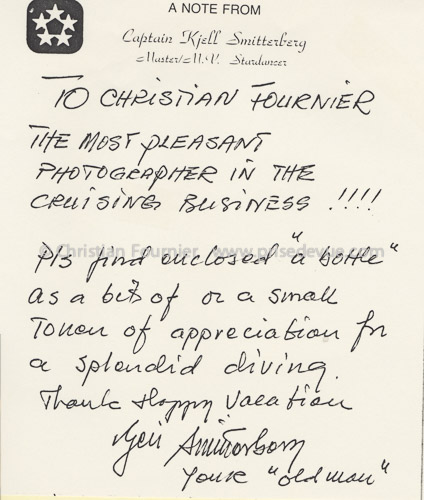 A NOTE FROM
Captain Kjell Smitterberg
Master/M.V. Stardancer
TO CHRISTIAN FOURNIER
THE MOST PLEASANT
PHOTOGRAPHER IN THE
CRUISING BUSINESS !!!!
© Christian Fournier www.prisedevue.com
Pls find enclosed "a bottle"
as a bit of or a small
Token of appreciation for
a splendid diving.
Thank Happy Vacation
Kjell Smitterberg
Youre "old man"